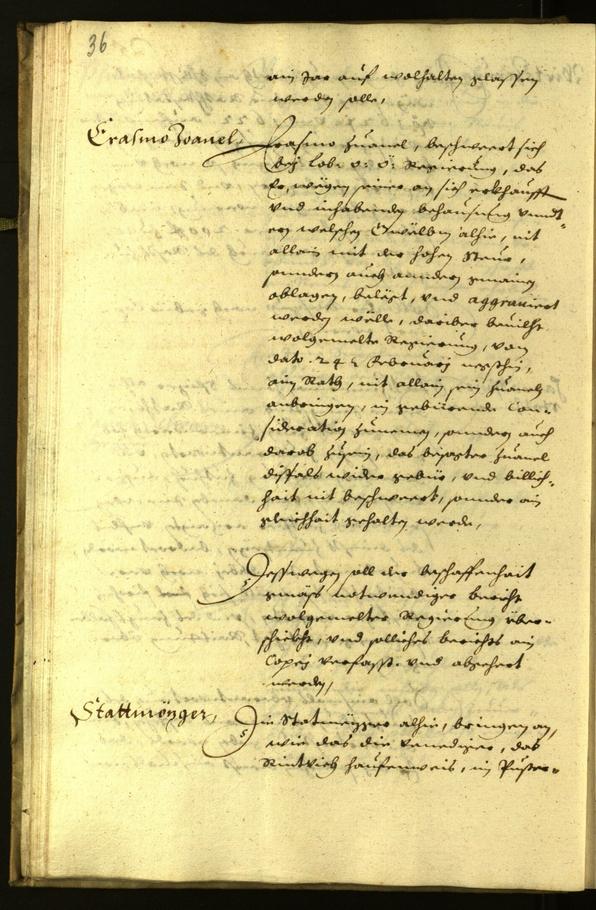 36
ain Jar auf wolhalten glassen
werden solle,
Erasmo Zoanel,
Erasmo Zuanel, beschwert sich
bey Lob: o: ö: Regierung, das
Er, wegen seiner an sich erkhaufft
und inhabenden behausung unnd
ern welschen Gwelben alhie, nit
allain mit der hohen Steur,
sonndern auch anndern gmainen
oblagen, belegt, und aggraviert
werden wölle, darüber bevilht
wolgemelte Regierung, von
dato 24 Februarij negsthin,
ain Rath, nit allain, sein Zuanels
anbringen, in gebürende Con=
sideration zunemen, sonndern auch
darob zusein, das besagter Zuanel
dißfals wider gebür, und billich=
hait nit beschwert, sonder ain
gleichhait gehalten werde,
Desswegen soll der beschaffenhait
gemäss notwendiger bericht
wolgemelter Regierung über=
schickht, und solliches berichts ain
Copey verfasst und abgehert
werden,
Stattmözger,
Die Statmezger alhie, bringen an,
wie das die Venediger, das
Rindtvich hauffenweis, im Puster=